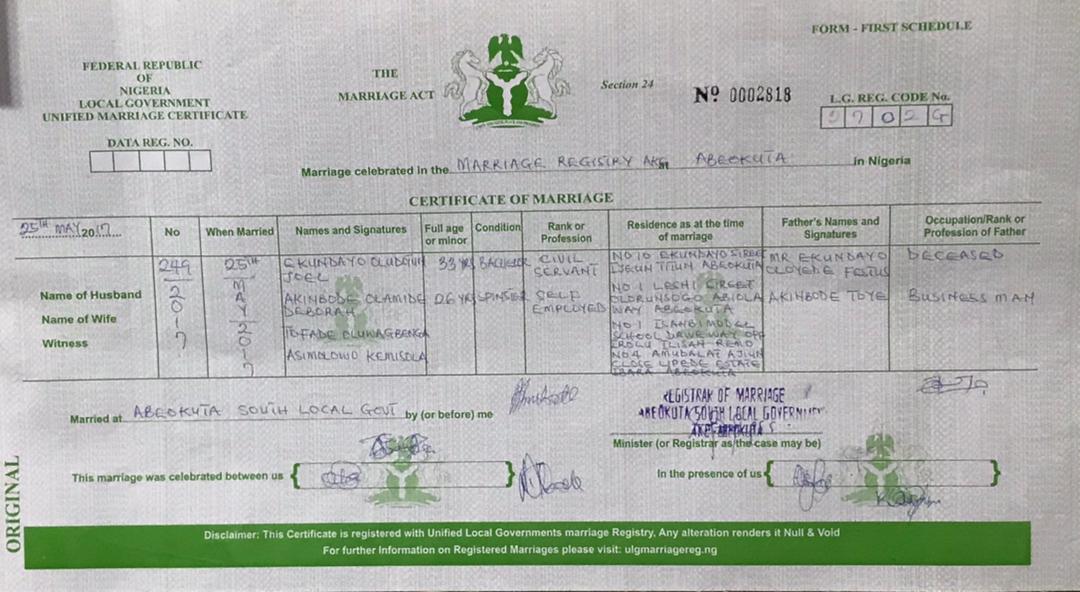 FORM - FIRST SCHEDULE
FEDERAL REPUBLIC
OF
NIGERIA
LOCAL GOVERNMENT
UNIFIED MARRIAGE CERTIFICATE
DATA REG. NO.
THE
MARRIAGE ACT
Section 24
Nº 0002818
L.G. REG. CODE No.
Marriage celebrated in the MARRIAGE REGISTRY AKE ABEOKUTA in Nigeria
CERTIFICATE OF MARRIAGE
25TH MAY 2017
No
When Married
Names and Signatures
Full age
or minor
Condition
Rank or
Profession
Residence as at the time
of marriage
Father's Names and
Signatures
Occupation/Rank or
Profession of Father
Name of Husband
Name of Wife
Witness
249
2
0
1
7
25TH
M
A
Y
2
0
1
7
EKUNDAYO
JOEL
33 YRS
BACHELOR
CIVIL
SERVANT
NO 10 EKUNDAYO STREET
ABEOKUTA
MR EKUNDAYO
OLOYEDE FESTUS
DECEASED
AKINBODE OLAMIDE
DEBORAH
26 YRS
SPINSTER
SELF
EMPLOYED
OLORUNSOGO ABIOLA
WAY ABEOKUTA
AKINBODE TOYE
BUSINESS MAN
OLUWAGBENGA
NO 1
SCHOOL
REMO
ASIMOLOWO KEMISOLA
NO 4
CLOSE ESTATE
IBARA ABEOKUTA
Married at ABEOKUTA SOUTH LOCAL GOVT by (or before) me
REGISTRAR OF MARRIAGE
ABEOKUTA SOUTH LOCAL GOVERNMENT
Minister (or Registrar as the case may be)
This marriage was celebrated between us
In the presence of us
ORIGINAL
Disclaimer: This Certificate is registered with Unified Local Governments marriage Registry, Any alteration renders it Null & Void
For further Information on Registered Marriages please visit: ulgmarriagereg.ng